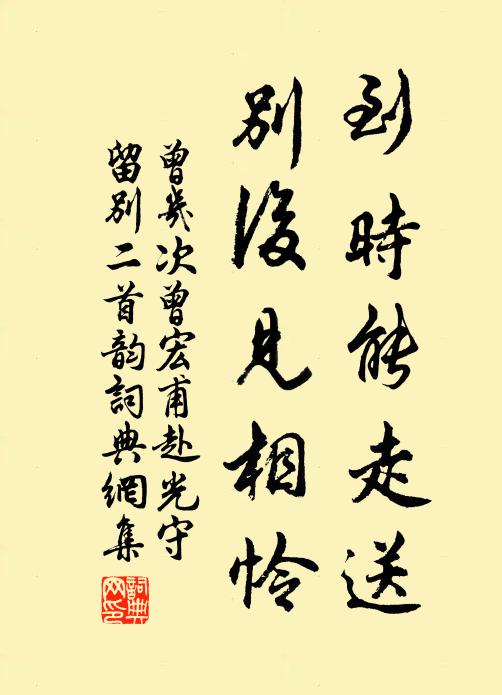 到時能走送
別後見相憐
曾幾次曾宏甫赴光守
留別二首韵詞典網集
詞典網印